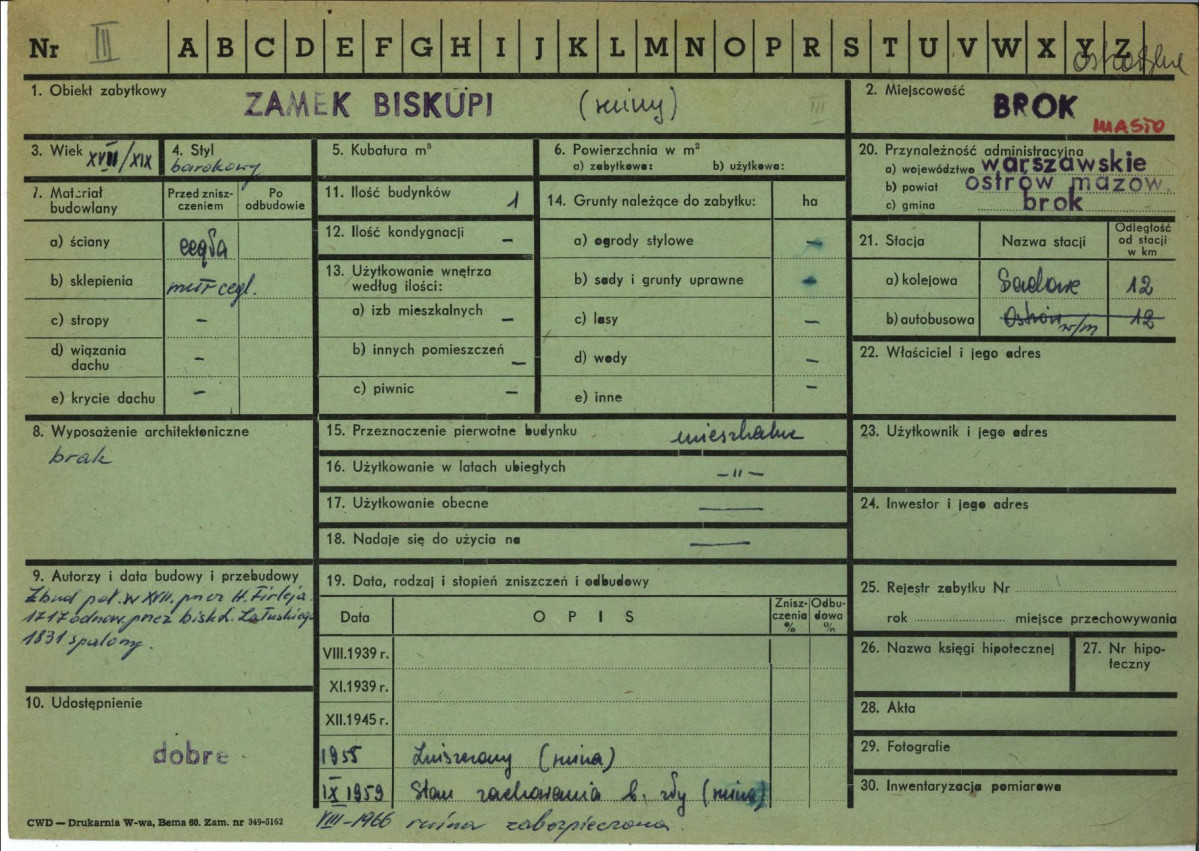 Nr III A B C D E F G H I J K L M N O P R S T U V W X Y Z
1. Obiekt zabytkowy
ZAMEK BISKUPI (ruiny) III
2. Miejscowość
BROK
MIASTO
3. Wiek XVII/XIX
4. Styl
barokowy
5. Kubatura m³
6. Powierzchnia w m²
a) zabytkowa: b) użytkowa:
20. Przynależność administracyjna
a) województwo warszawskie
b) powiat ostrów mazow.
c) gmina brok
7. Materiał budowlany
Przed znisz-
czeniem
Po
odbudowie
a) ściany cegła
b) sklepienia mur cegl.
c) stropy –
d) wiązania
dachu –
e) krycie dachu –
11. Ilość budynków 1
12. Ilość kondygnacji –
13. Użytkowanie wnętrza
według ilości:
a) izb mieszkalnych –
b) innych pomieszczeń –
c) piwnic –
14. Grunty należące do zabytku: ha
a) ogrody stylowe –
b) sady i grunty uprawne –
c) lasy –
d) wody –
e) inne –
21. Stacja
Nazwa stacji
Odległość
od stacji
w km
a) kolejowa Sadowe 12
b) autobusowa Ostrów w/m 12
22. Właściciel i jego adres
8. Wyposażenie architektoniczne
brak
15. Przeznaczenie pierwotne budynku mieszkalne
16. Użytkowanie w latach ubiegłych –〃–
17. Użytkowanie obecne —
18. Nadaje się do użycia na —
23. Użytkownik i jego adres
24. Inwestor i jego adres
9. Autorzy i data budowy i przebudowy
Zbud. poł. w XVII. przez H. Firleja.
1717 odnow. przez bisk. L. Załuskiego
1831 spalony.
19. Data, rodzaj i stopień zniszczeń i odbudowy
Data
OPIS
Znisz-
czenia
%
Odbu-
dowa
%
VIII.1939 r.
XI.1939 r.
XII.1945 r.
1955 Zniszczony (ruina)
IX 1959 Stan zachowania b. zły (ruina)
VIII-1966 ruina zabezpieczona.
25. Rejestr zabytku Nr
rok miejsce przechowywania
26. Nazwa księgi hipotecznej
27. Nr hipo-
teczny
10. Udostępnienie
dobre
28. Akta
29. Fotografie
30. Inwentaryzacja pomiarowa
CWD — Drukarnia W-wa, Bema 60. Zam. nr 349-5162